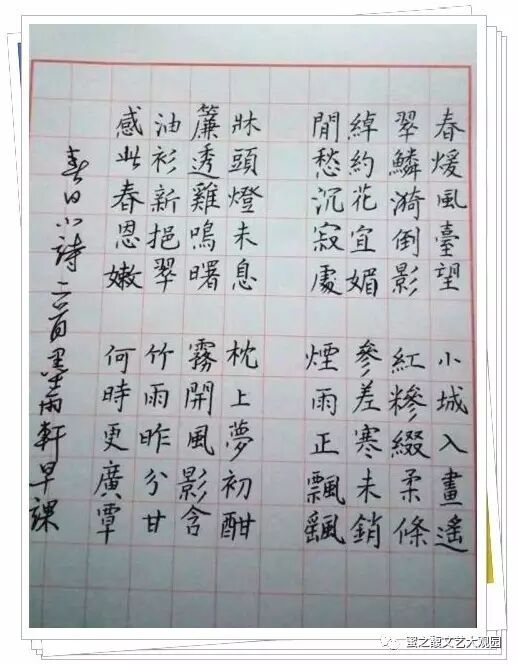 春煖風臺望 小城入畫遙
翠鱗漪倒影 紅糝綴柔條
綽約花宜媚 參差寒未銷
閒愁沉寂處 煙雨正飄颻
牀頭燈未息 枕上夢初酣
簾透雞鳴曙 霧開風影含
油衫新挹翠 竹雨昨分甘
感此春恩嫩 何時更廣覃
春日小詩二首 雨軒早課
蜜之馥文艺大观园